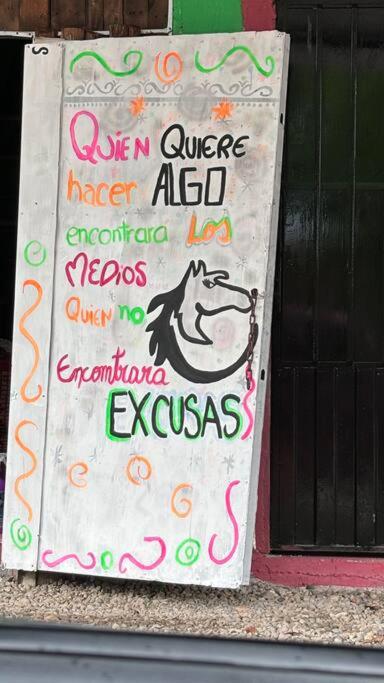 QUIEN QUIERE
hacer ALGO
encontrara LOS
MEDIOS
QUIEN no
Encomtrara
EXCUSAS